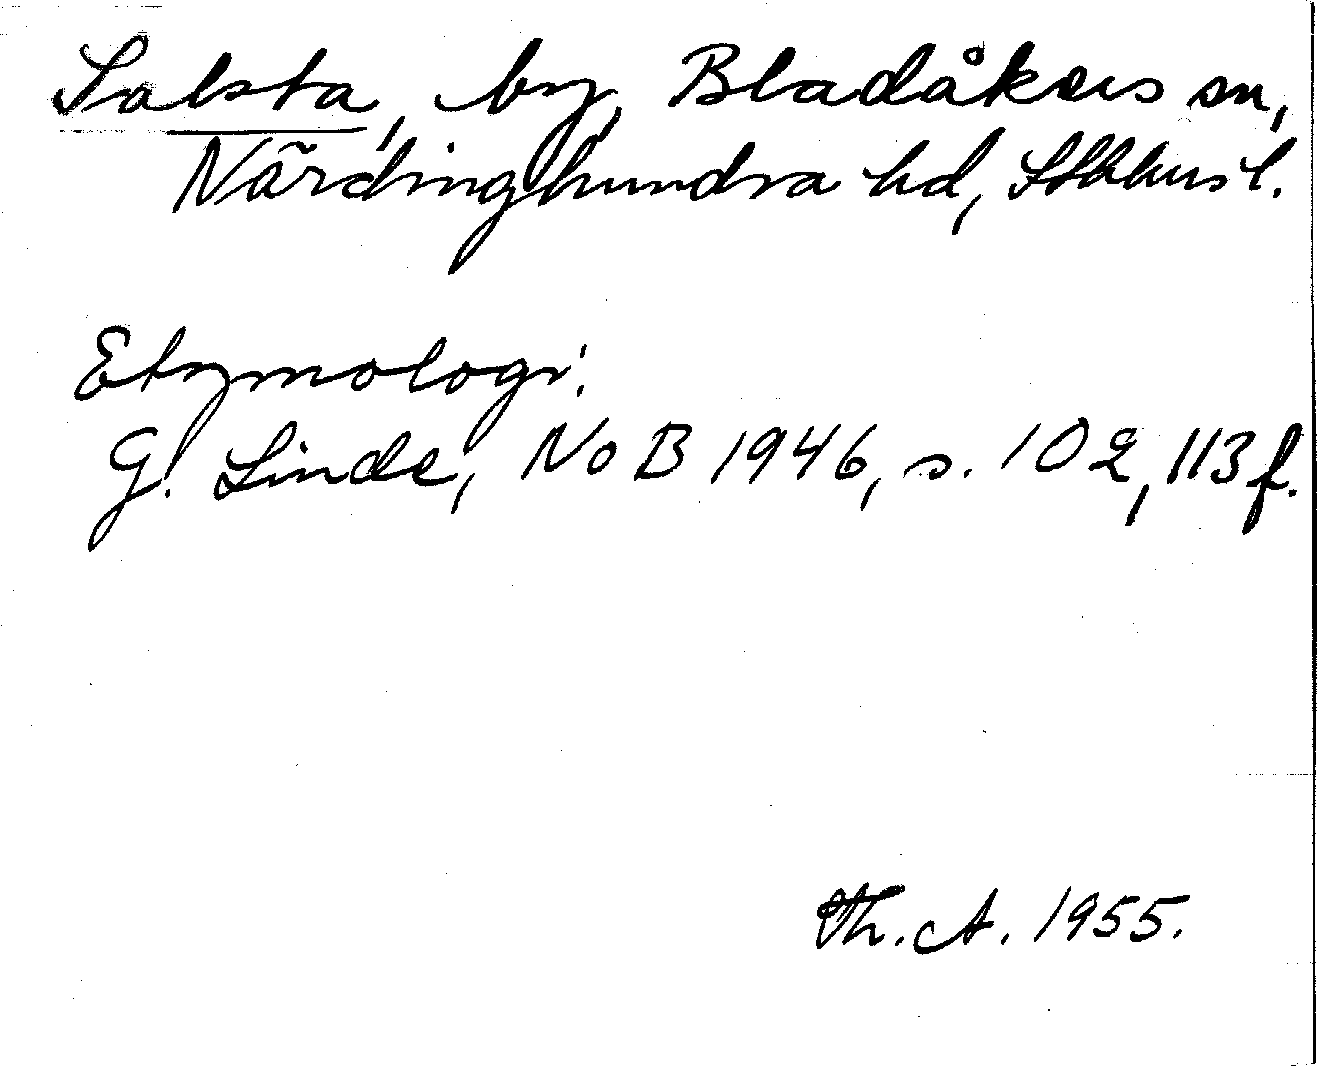 Salsta, by, Bladåkers sn,
Närdinghundra hd, Sthlms l.
Etymologi:
G. Linde, NoB 1946, s. 102, 113 f.
Th. A. 1955.